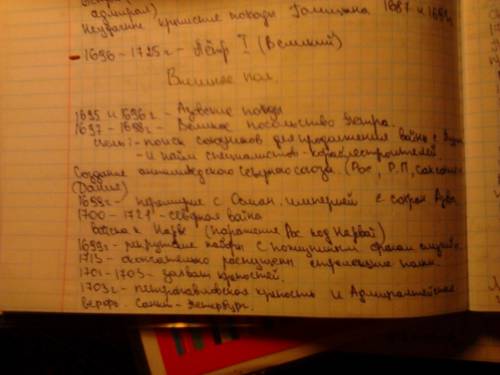 адмирал)
Неудачные крымские походы Голицына 1687 и 1689
1696 - 1725 г - Пётр I (Великий)
Внешняя пол.
1695 и 1696 г - Азовские походы
1697 - 1698 г - Великое посольство Петра.
цель: - поиск союзников для продолжения войны с
- и найм специалистов - кораблестроителей.
Создание антишведского Северного союза (Рос, Р.П, Саксония
(Дания)
1699 г - перемирие с Осман. империей с сохран Азова
1700 - 1721 - северная война
Войска к Нарве (поражение Рос под Нарвой)
1699 г - рекрутские наборы с
1713 - окончательно распущены стрелецкие полки.
1701 - 1703 - захват крепостей.
1703 г - петропавловская крепость и Адмиралтейская
верфь. Санкт - Петербург.